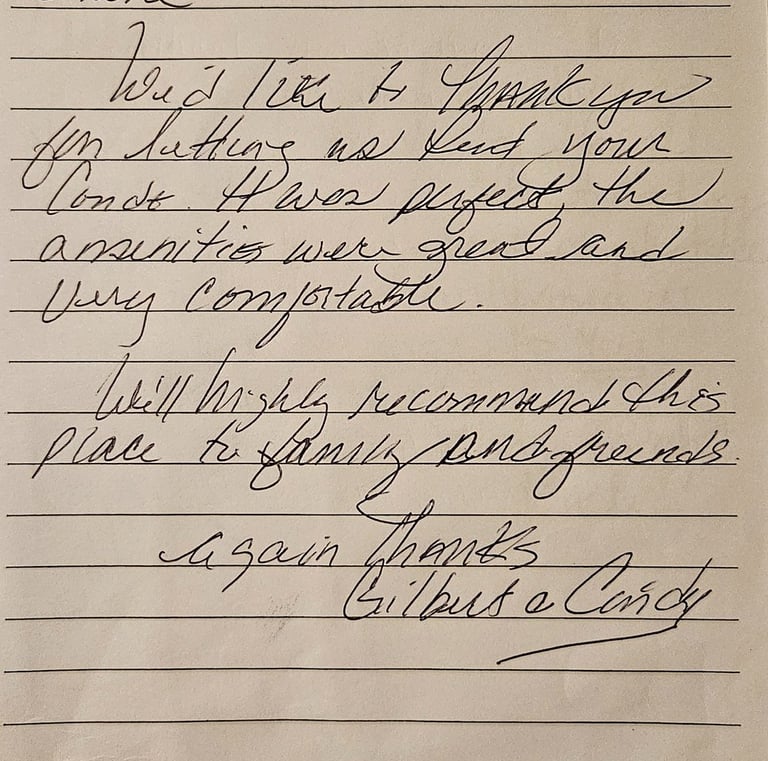 We'd like to Thank you
for letting us rent your
Condo. It was perfect, the
amenities were great and
Very comfortable.
Will highly recommend this
place to family and friends.
Again Thanks
Gilbert & Candy